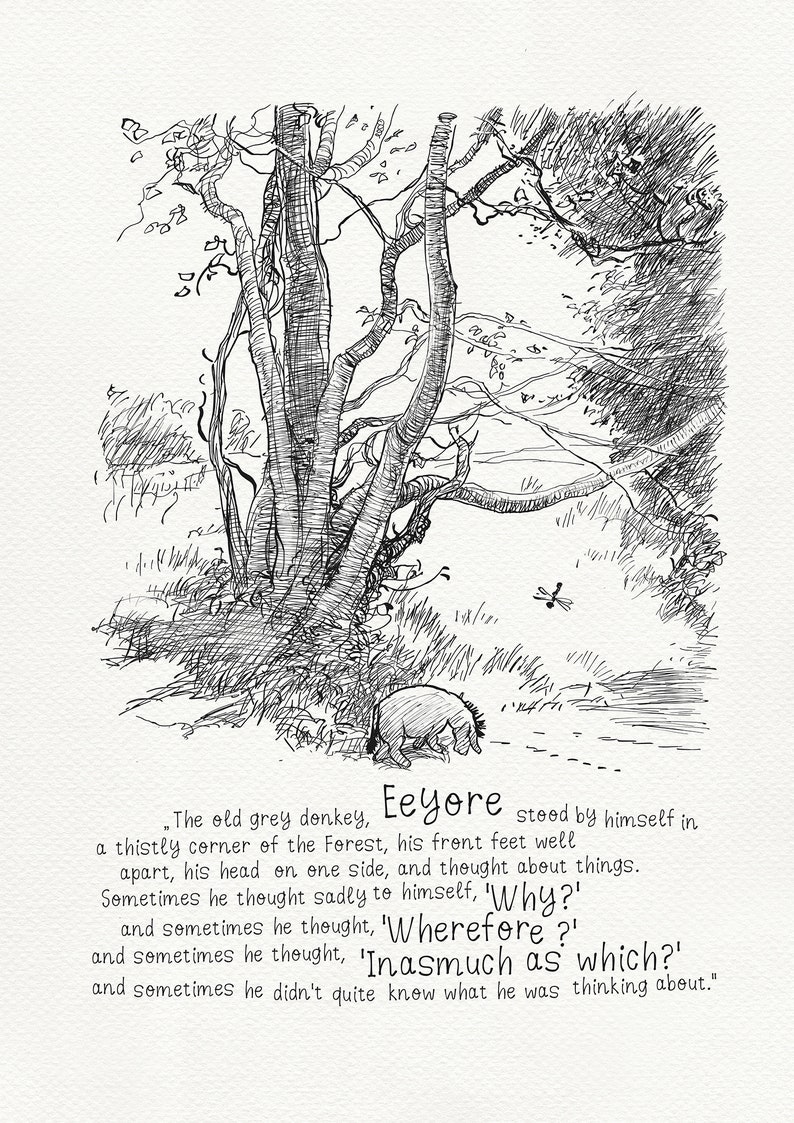 „The old grey donkey, Eeyore stood by himself in
a thistly corner of the Forest, his front feet well
apart, his head on one side, and thought about things.
Sometimes he thought sadly to himself, 'Why?'
and sometimes he thought, 'Wherefore ?'
and sometimes he thought, 'Inasmuch as which?'
and sometimes he didn't quite know what he was thinking about."